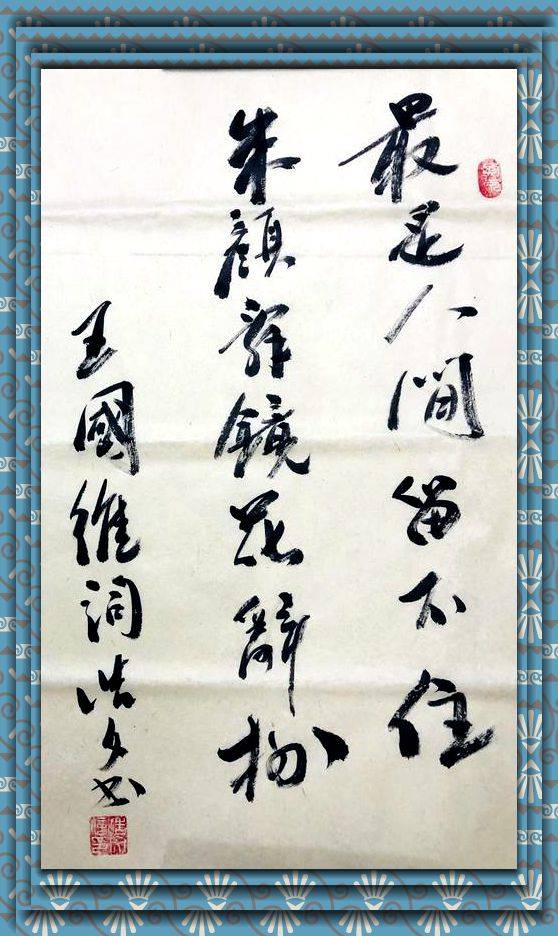 最是人間留不住
朱顏辭鏡花辭樹
王國維詞浩夕书